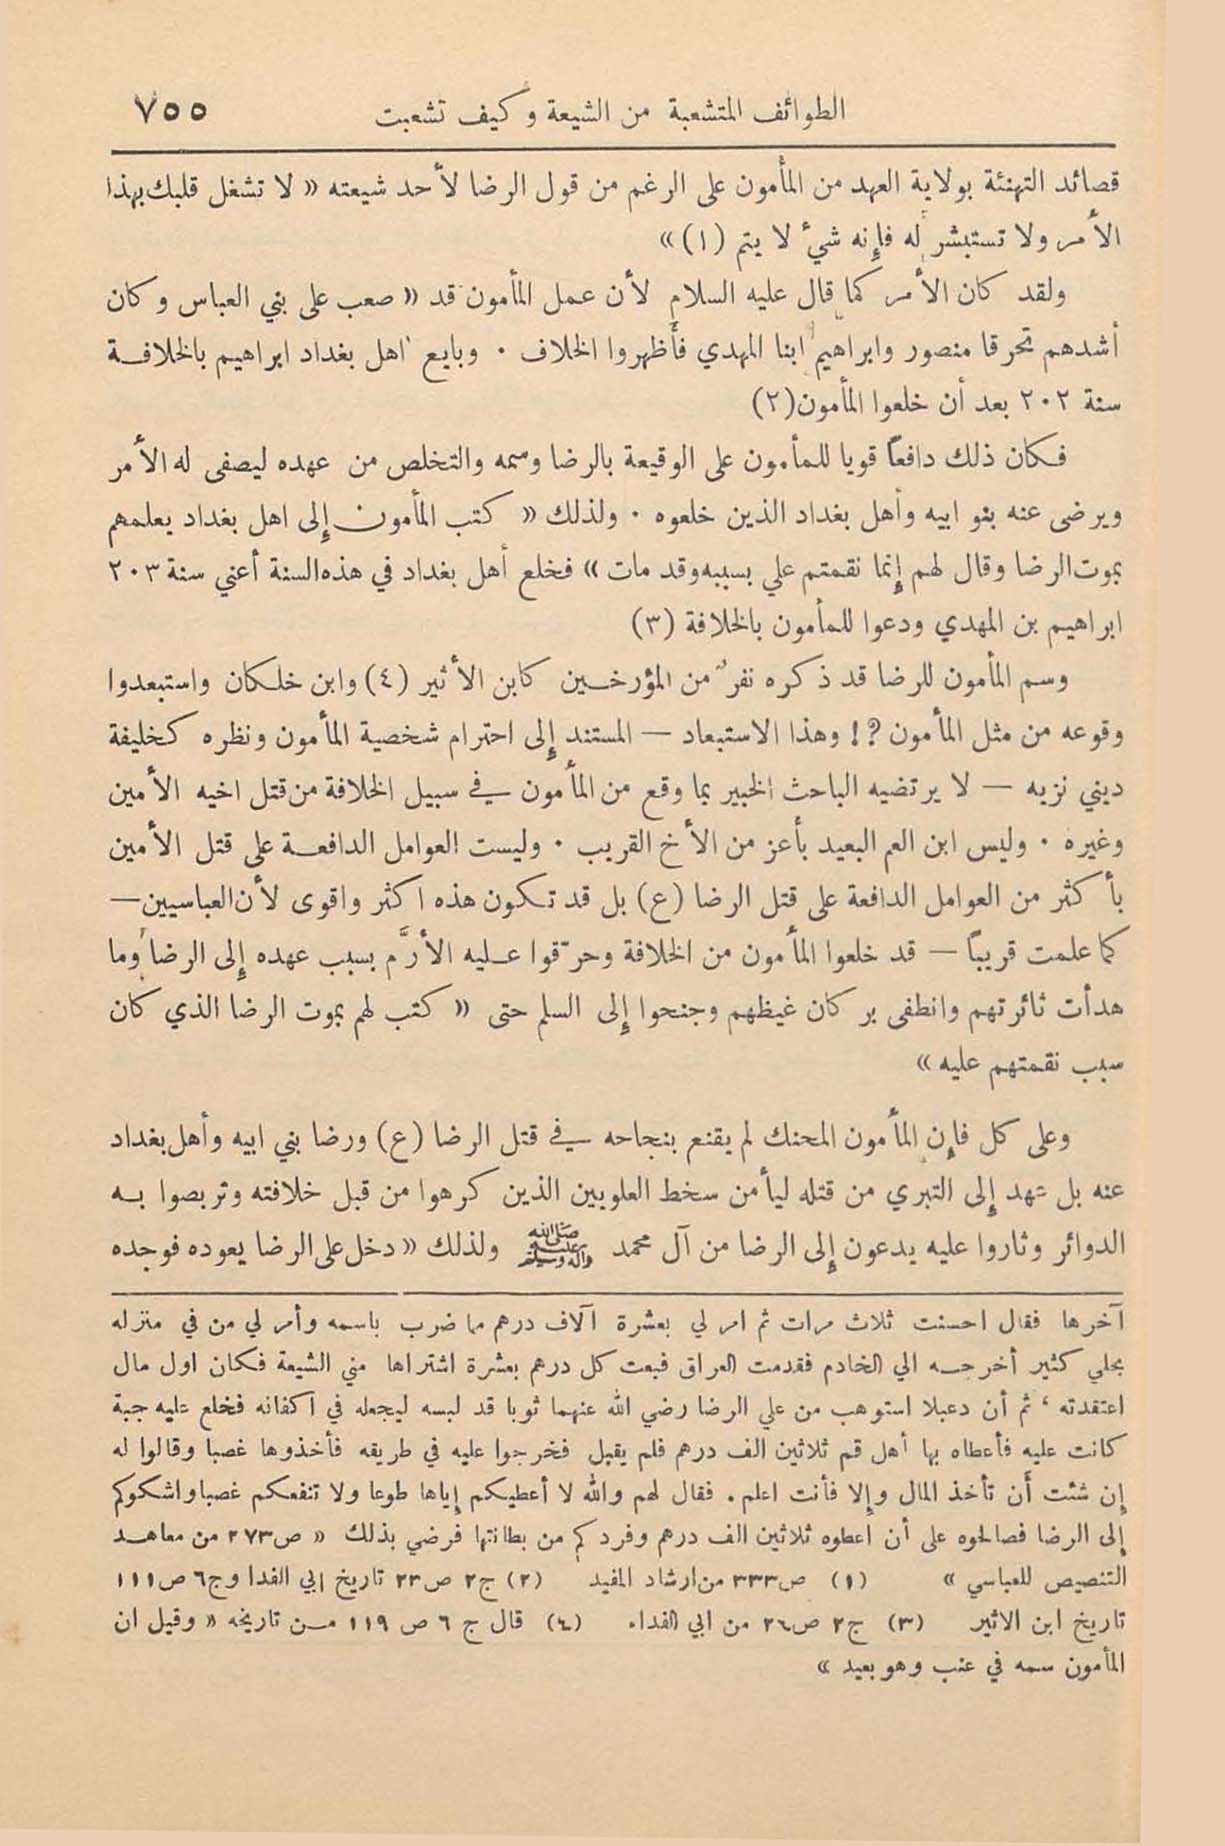 الطوائف المتشعبة من الشيعة وكيف تشعبت ٧٥٥
قصائد التهنئة بولاية العهد من المأمون على الرغم من قول الرضا لأحد شيعته « لا تشغل قلبك بهذا
الأمر ولا تستبشر له فإنه شيء لا يتم (١) »
ولقد كان الأمر كما قال عليه السلام لأن عمل المأمون قد « صعب على بني العباس وكان
أشدهم تحرقا منصور وابراهيم ابنا المهدي فأظهروا الخلاف ٠ وبايع اهل بغداد ابراهيم بالخلافة
سنة ٢٠٢ بعد أن خلعوا المأمون(٢)
فكان ذلك دافعاً قويا للمأمون على الوقيعة بالرضا وسمه والتخلص من عهده ليصفى له الأمر
ويرضى عنه بنو ابيه وأهل بغداد الذين خلعوه ٠ ولذلك « كتب المأمون إلى اهل بغداد يعلمهم
بموت الرضا وقال لهم إنما نقمتم علي بسببه وقد مات » فخلع أهل بغداد في هذه السنة أعني سنة ٢٠٣
ابراهيم بن المهدي ودعوا للمأمون بالخلافة (٣)
وسم المأمون للرضا قد ذكره نفر من المؤرخين كابن الأثير (٤) وابن خلكان واستبعدوا
وقوعه من مثل المأمون ?! وهذا الاستبعاد — المستند إلى احترام شخصية المأمون ونظره كخليفة
ديني نزيه — لا يرتضيه الباحث الخبير بما وقع من المأمون في سبيل الخلافة من قتل اخيه الأمين
وغيره ٠ وليس ابن العم البعيد بأعز من الأخ القريب ٠ وليست العوامل الدافعة على قتل الأمين
بأكثر من العوامل الدافعة على قتل الرضا (ع) بل قد تكون هذه اكثر واقوى لأن العباسيين —
كما علمت قريباً — قد خلعوا المأمون من الخلافة وحرّقوا عليه الأرَّم بسبب عهده إلى الرضا وما
هدأت ثائرتهم وانطفى بركان غيظهم وجنحوا إلى السلم حتى « كتب لهم بموت الرضا الذي كان
سبب نقمتهم عليه »
وعلى كل فإن المأمون المحنك لم يقنع بنجاحه في قتل الرضا (ع) ورضا بني ابيه وأهل بغداد
عنه بل عهد إلى التبري من قتله ليأمن سخط العلويين الذين كرهوا من قبل خلافته وتربصوا به
الدوائر وثاروا عليه يدعون إلى الرضا من آل محمد صلى الله عليه وآله وسلم ولذلك « دخل على الرضا يعوده فوجده
آخرها فقال احسنت ثلاث مرات ثم امر لي بعشرة آلاف درهم مما ضرب باسمه وأمر لي من في منزله
بحلي كثير أخرجه الي الخادم فقدمت العراق فبعت كل درهم بعشرة اشتراها مني الشيعة فكان اول مال
اعتقدته ، ثم أن دعبلا استوهب من علي الرضا رضي الله عنهما ثوبا قد لبسه ليجعله في اكفانه فخلع عليه جبة
كانت عليه فأعطاه بها أهل قم ثلاثين الف درهم فلم يقبل فخرجوا عليه في طريقه فأخذوها غصبا وقالوا له
إن شئت أن تأخذ المال وإلا فأنت اعلم . فقال لهم والله لا أعطيكم إياها طوعا ولا تنفعكم غصبا واشكوكم
إلى الرضا فصالحوه على أن اعطوه ثلاثين الف درهم وفردكم من بطانتها فرضي بذلك « ص ٢٧٣ من معاهد
التنصيص للعباسي » (١) ص ٣٣٣ من ارشاد المفيد (٢) ج٢ ص ٢٣ تاريخ ابي الفدا وج٦ ص ١١١
تاريخ ابن الاثير (٣) ج٢ ص ٢٦ من ابي الفداء (٤) قال ج ٦ ص ١١٩ من تاريخه « وقيل ان
المأمون سمه في عنب وهو بعيد »